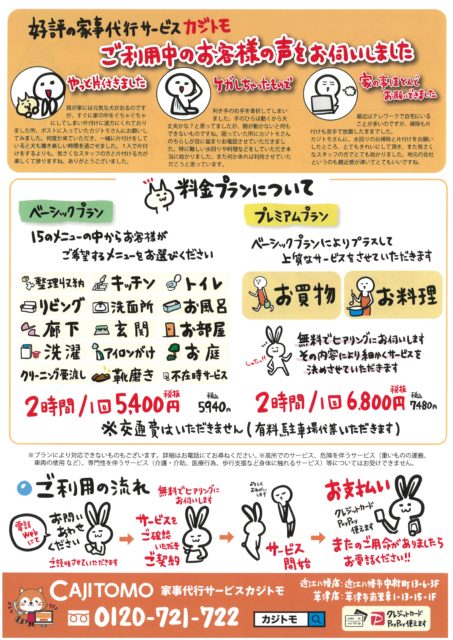 好評の家事代行サービスカジトモ
ご利用中のお客様の声をお伺いしました
やっと片付きました
ケガしちゃったので
家の事ほとんど
お願いできました
我が家には元気な犬がおるのです
が、すぐに家の中をぐちゃぐちゃに
してしまい片付けに途方にくれてお
りました所、ポストに入っていたカジトモさんにお願い
してみました。何度か来ていただき、一緒に片付けをして
いると犬も懐き楽しい時間を過ごせました。1人で片付
けをするよりも、気さくなスタッフの方と片付ける方が
楽しくて捗りますね。ありがとうございました。
利き手の右手を骨折してしまい
ました。手のひらは動くから大
丈夫かな？と思ってましたが、腕が動かないと何も
できないものですね。困っていた所にカジトモさんの
のちらしが目に留まりお電話させていただきまし
た。特に難しい水回りや料理などをしていただき本
当に助かりました。また何かあれば利用させていた
だこうと思っています。
最近はテレワークで自宅にいる
ことが多いのですが、掃除も片
付けも苦手で放置したままでした。
カジトモさんに、水回りのお掃除と片付けをお願い
したところ、とてもきれいにして頂き、また気さくな
スタッフの方でとても助かりました。地元の会社
というのも親近感が沸いてとてもいいですね。
料金プランについて
ベーシックプラン
15のメニューの中からお客様が
ご希望するメニューをお選びください
整理収納 キッチン トイレ
リビング 洗面所 お風呂
廊下 玄関 お部屋
洗濯 アイロンがけ お庭
クリーニング受渡し 靴磨き 不在時サービス
2時間/1回 5,400円 税抜
税込 5940円
プレミアムプラン
ベーシックプランによりプラスして
上質なサービスをさせていただきます
お買物
お料理
無料でヒアリングにお伺いします
その内容により細かくサービスを
決めさせていただきます
2時間/1回 6,800円 税抜
税込 7480円
※交通費はいただきません(有料駐車場代等いただきます)
※プランにより対応できないものもございます。詳細はお電話にてお尋ねください。※高所でのサービス、危険を伴うサービス（重いものの運搬、
車両の使用など）、専門性を伴うサービス（介護・介助、医療行為、歩行支援など身体に触れるサービス）等についてはお受けできません。
ご利用の流れ
電話
Web
にて
お問い
あわせ
ください
ご説明させていただきます
無料でヒアリングに
お伺いします
サービスを
ご確認
いただき
ご契約
よろしく
おねがい
します
サービス
開始
お支払い
クレジットカード
PayPay
使えます
またのご用命がありましたら
お電話ください!!
CAJITOMO 家事代行サービスカジトモ
0120-721-722
カジトモ
近江八幡店：近江八幡市中村町13-6-3F
草津店：草津市南笠東1-13-15-1F
クレジットカード
PayPay使えます